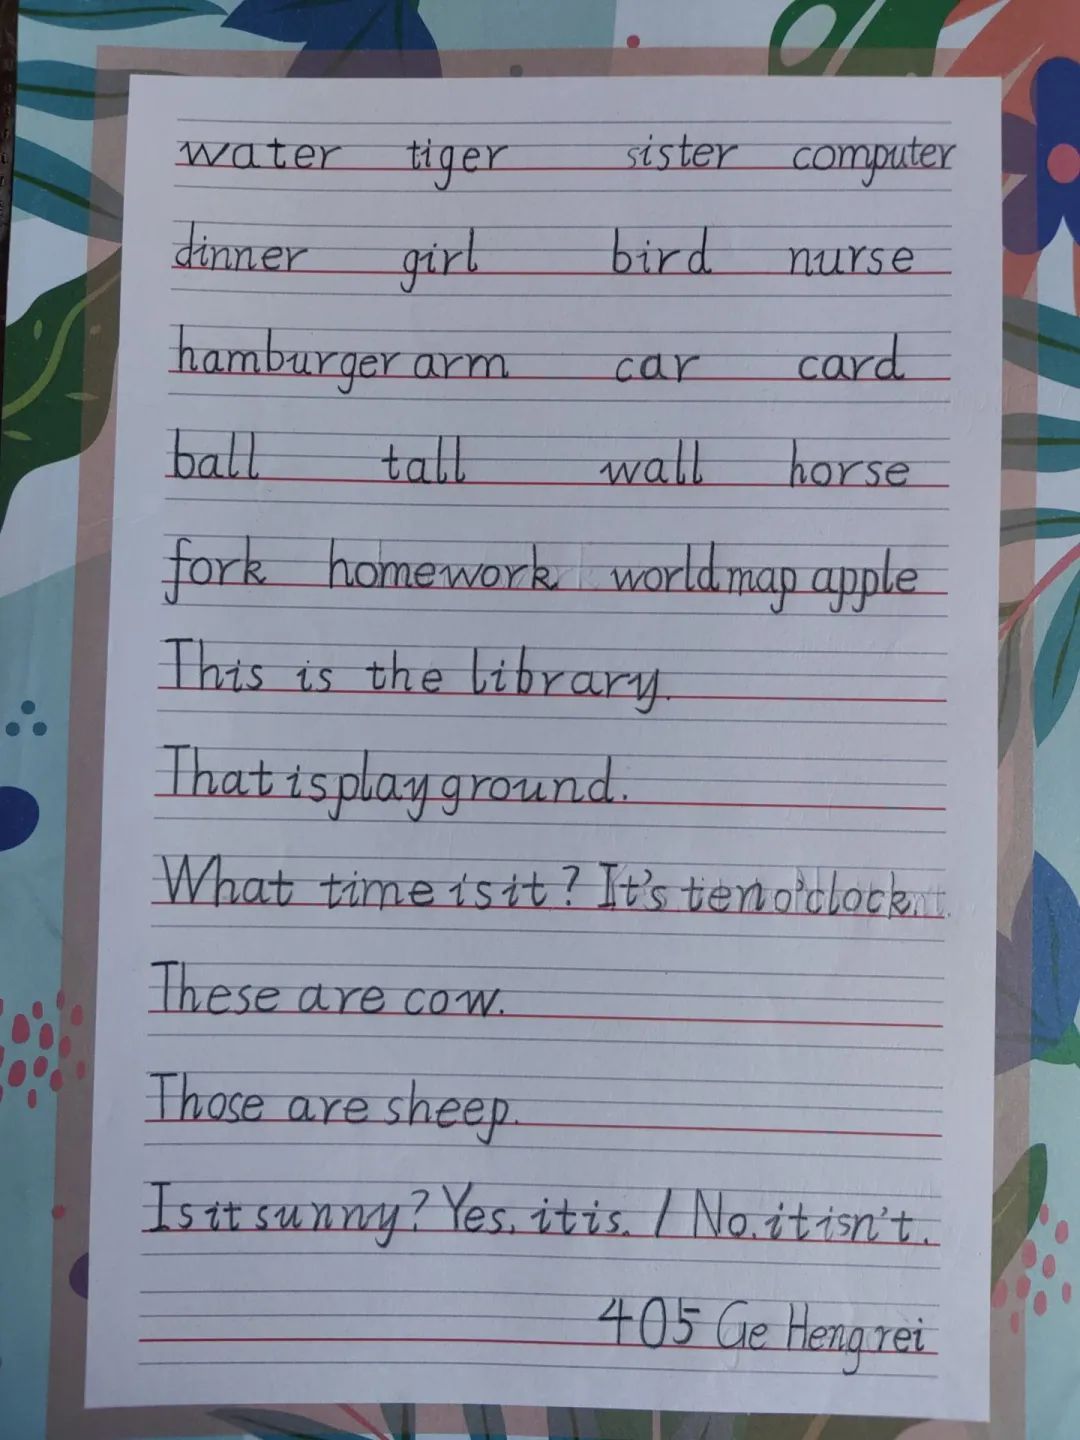 water tiger sister computer
dinner girl bird nurse
hamburger arm car card
ball tall wall horse
fork homework world map apple
This is the library.
That is playground.
What time is it? It's ten o'clock.
These are cow.
Those are sheep.
Is it sunny? Yes, it is. / No, it isn't.
405 Ge Hengrei